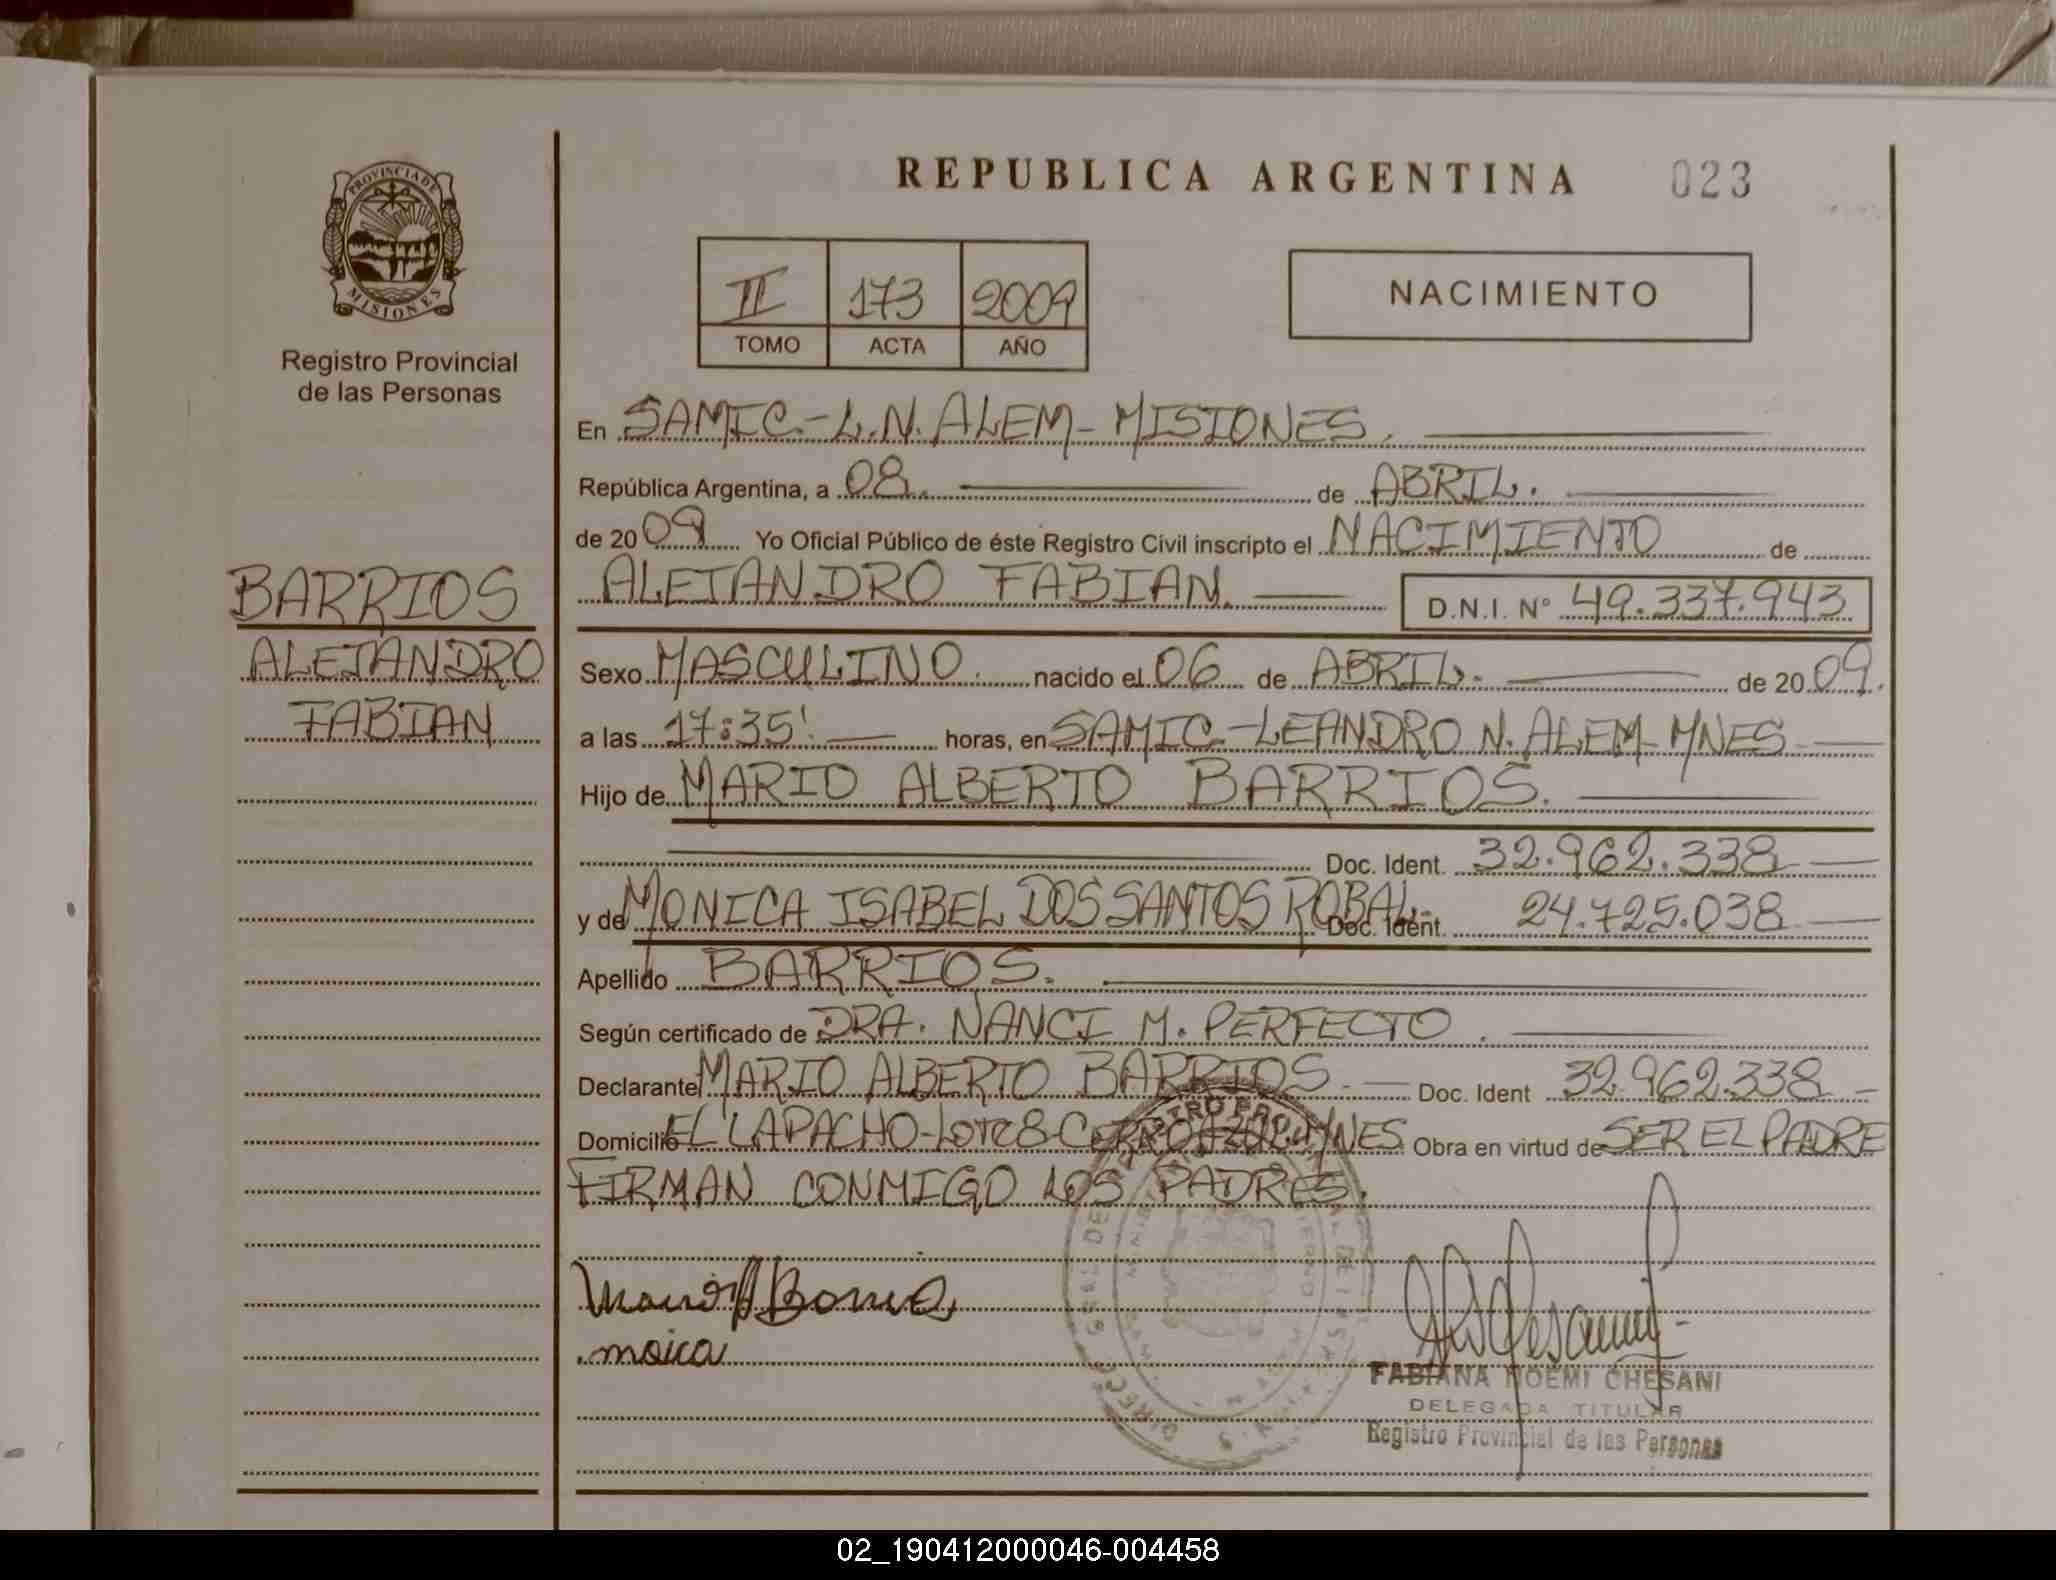 REPUBLICA ARGENTINA 023
PROVINCIA DE
MISIONES
Registro Provincial
de las Personas
II 173 2009
TOMO ACTA AÑO
NACIMIENTO
En SAMIC.-L.N. ALEM- MISIONES.
República Argentina, a 08. de ABRIL.
de 2009 Yo Oficial Público de éste Registro Civil inscripto el NACIMIENTO de
ALEJANDRO FABIAN. D.N.I. Nº 49.337.943
BARRIOS
ALEJANDRO
FABIAN
Sexo MASCULINO. nacido el 06 de ABRIL. de 2009.
a las 17:35' horas, en SAMIC-LEANDRO N. ALEM-MNES
Hijo de MARIO ALBERTO BARRIOS.
Doc. Ident. 32.962.338
y de MONICA ISABEL DOS SANTOS ROBAL- Doc. Ident. 24.725.038
Apellido BARRIOS.
Según certificado de DRA. NANCI M. PERFECTO.
Declarante MARIO ALBERTO BARRIOS. Doc. Ident 32.962.338
Domicilio EL LAPACHO-Lote 8-CERRO AZUL-MNES. Obra en virtud de SER EL PADRE
FIRMAN CONMIGO LOS PADRES.
moica
FABIANA NOEMI CHESANI
DELEGADA TITULAR
Registro Provincial de las Personas
02_190412000046-004458